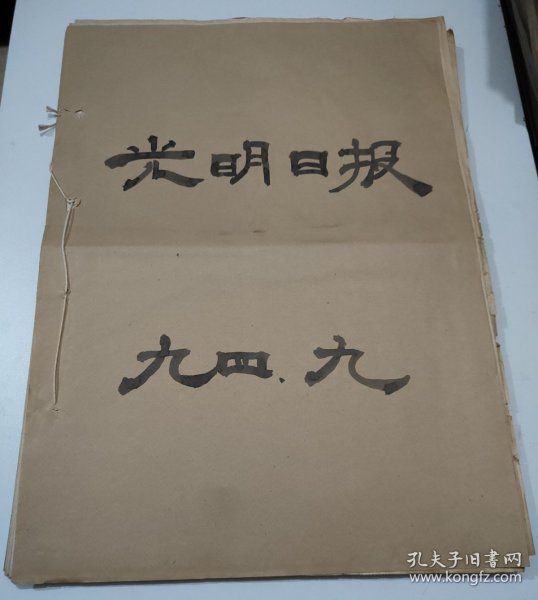 光明日报
九四.九
孔夫子旧書网
www.kongfz.com